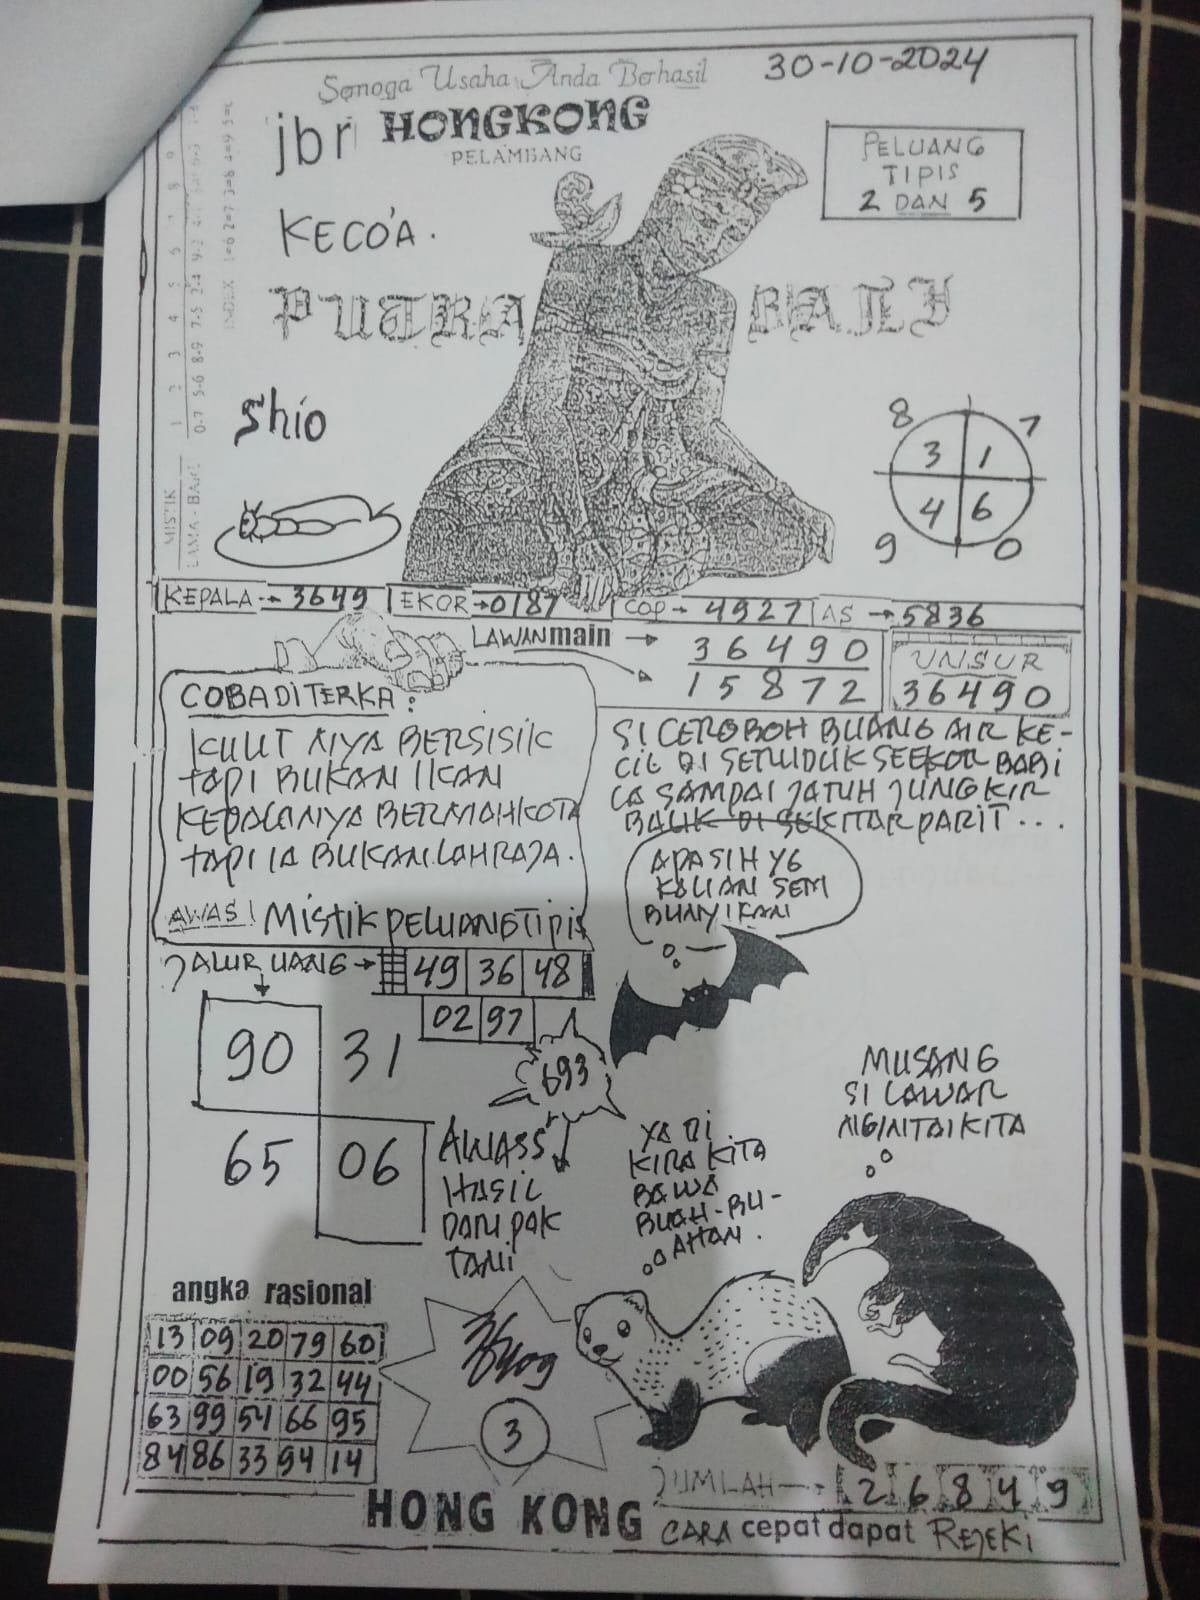 Semoga Usaha Anda Berhasil
30-10-2024
jbr HONGKONG
PELAMBANG
PELUANG
TIPIS
2 DAN 5
KECO'A.
PUTRA BALI
shio
8 7
3 1
4 6
9 0
MISTIK
LAMA - BARU
INDEX 1=6 2=7 3=8 4=9 5=0
KEPALA → 3649 EKOR → 0187 COP → 4927 AS → 5836
LAWAN main → 36490
15872
UNSUR
36490
COBA DI TERKA :
KULIT NYA BERSISIK
TAPI BUKAN IKAN
KEPALANYA BERMAHKOTA
TAPI IA BUKANLAH RAJA.
AWAS! MISTIK PELUANG TIPIS
SI CEROBOH BUANG AIR KE-
CIL DI SERUDUK SEEKOR BABI
LA SAMPAI JATUH JUNGKIR
BALIK DI SEKITAR PARIT...
APA SIH YG
KALIAN SEM
BUNYIKAN
JALUR UANG → 49 36 48
02 97
90 31
65 06
693
AWASS
HASIL
DARI PAK
TANI
YA DI
KIRA KITA
BAWA
BUAH-BU-
AHAN.
MUSANG
SI LAWAR
NGINTAI KITA
angka rasional
13 09 20 79 60
00 56 19 32 44
63 99 54 66 95
84 86 33 94 14
3
JUMLAH → 2 6 8 4 9
HONG KONG
CARA cepat dapat REJEKI